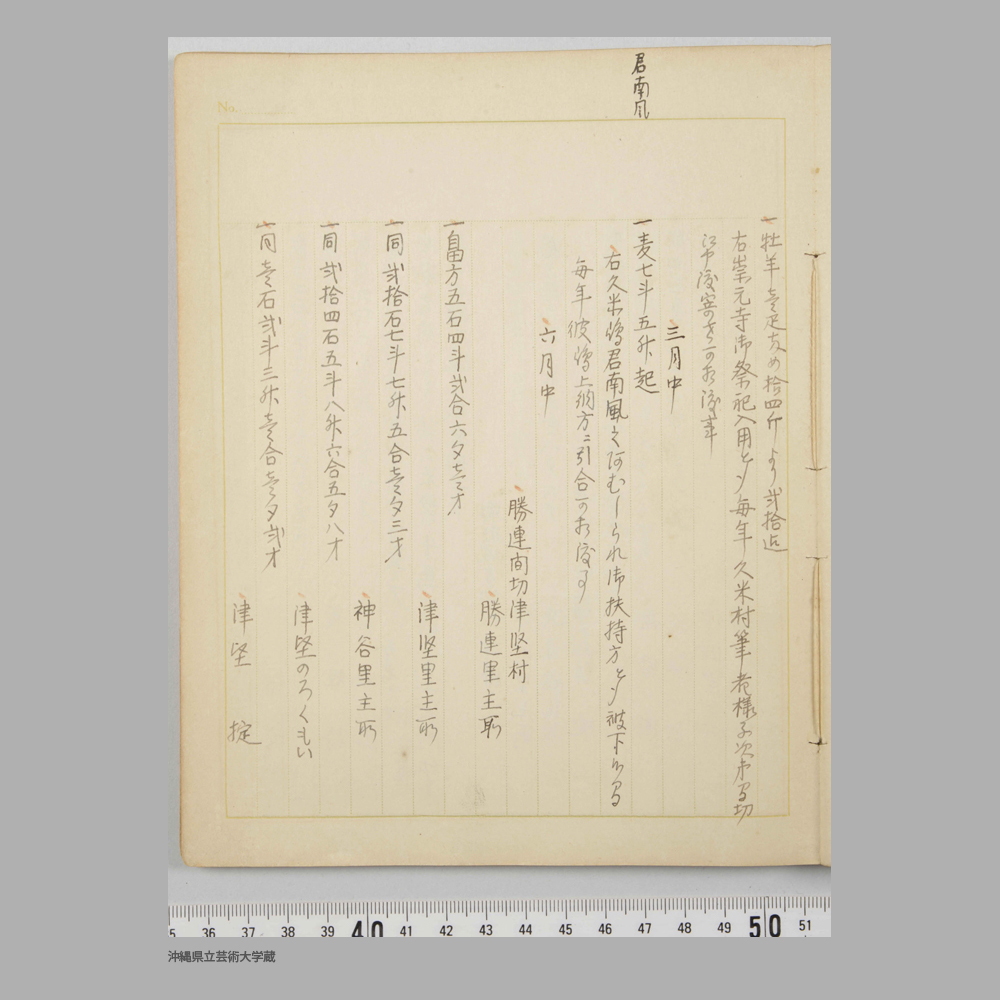 君南風
一 牡羊壱疋 拾四斤より弐拾迄
右崇元寺御祭祀入用として毎年久米村筆者様子次第間切
三月中
一 麦七斗五升起
右久米嶋君南風之あむしられ御扶持方として被下候間
毎年彼嶋上納方ニ引合可相渡事
六月中
勝連間切津堅村
勝連里主所
一 畠方五石四斗弐合六夕壱才
津堅里主所
一 同弐拾石七斗七升五合壱夕三才
神谷里主所
一 同弐拾四石五斗八升六合五夕八才
津堅のろくもい
一 同壱石弐斗三升壱合壱夕弐才
津堅 掟
No.
35 36 37 38 39 40 41 42 43 44 45 46 47 48 49 50 51
沖縄県立芸術大学蔵